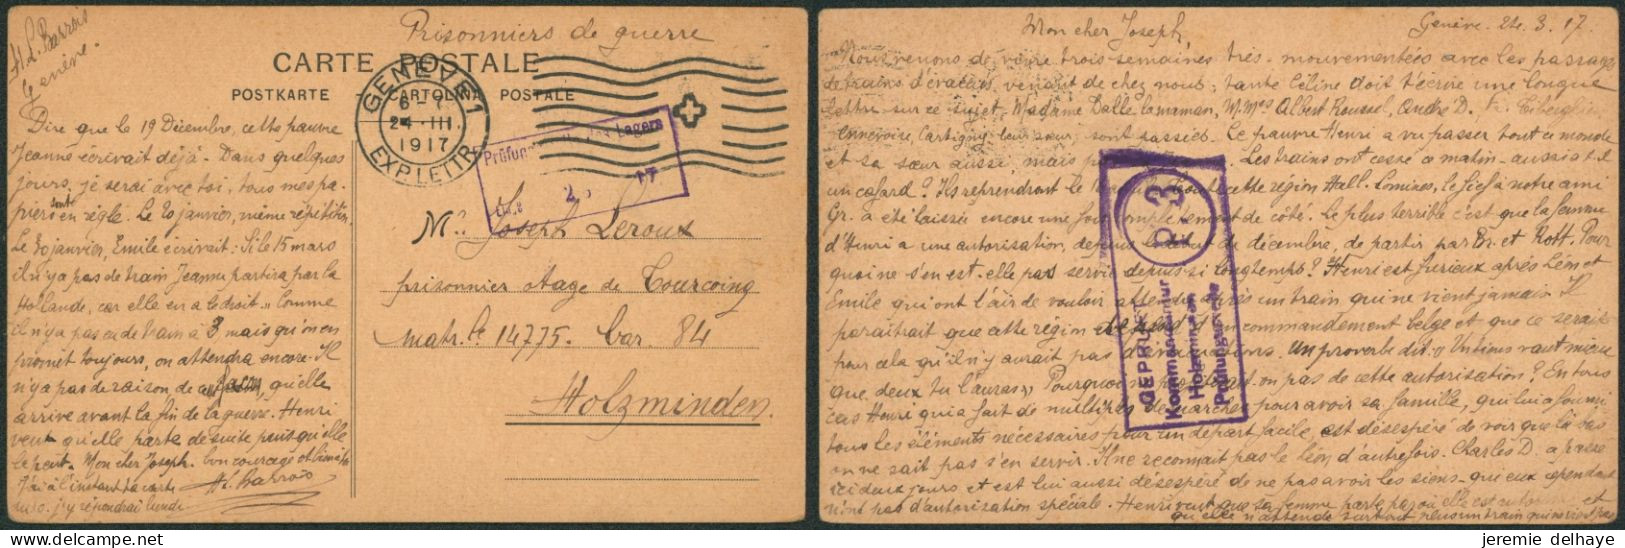 H. L. Barrois
Genève.
Prisonniers de guerre
CARTE POSTALE
POSTKARTE — CARTOLINA POSTALE
GENÈVE 1
24 III.
1917
EXP. LETTR.
Prüfungs des Lagers
17
Dire que le 19 Décembre, cette pauvre
Jeanne écrivait déjà. Dans quelques
jours, je serai avec toi, tous mes pa-
piers sont en règle. Le 20 janvier, même répétition
Le 30 janvier, Emile écrivait: Si le 15 mars
il n'y a pas de train Jeanne partira par la
Hollande, car elle en a le droit. Comme
il n'y a pas eu de train à 3 mais qu'on en
promet toujours, on attendra encore. Il
n'y a pas de raison de qu'elle
arrive avant la fin de la guerre. Henri
veut qu'elle parte de suite puisqu'elle
le peut. Mon cher Joseph, bon courage et
J'ai à l'instant ta carte
j'y répondrai lundi
H. L. Barrois
Mr. Joseph Leroux
prisonnier otage de Tourcoing
matr. le 14775. bar. 84
Holzminden.
Mon cher Joseph,
Genève. 24. 3. 17.
Nous venons de vivre trois semaines très mouvementées avec les passages
de trains d'évacués venant de chez nous; tante Céline doit t'écrire une longue
lettre sur ce sujet. Madame Dalle la maman, M. Mes Albert Roussel, André D.
Cartigny leur sœur, sont passées. Ce pauvre Henri a vu passer tout ce monde
et sa sœur aussi, mais Les trains ont cessé ce matin - aussi a-t-il
un cafard? Ils reprendront le toute cette région Hall. Lomines, le fief à notre ami
Gr. a été laissée encore une fois complètement de côté. Le plus terrible c'est que la femme
d'Henri a une autorisation, depuis le de décembre, de partir par Br. et Rott. Pour
quoi ne s'en est-elle pas servie depuis si longtemps? Henri est furieux après Léon et
Emile qui ont l'air de vouloir attendre après un train qui ne vient jamais. Il
paraîtrait que cette région dépend d'un commandement belge et que ce serait
pour cela qu'il n'y aurait pas de trains. Un proverbe dit: Un tiens vaut mieux
que deux tu l'auras, Pourquoi ne on pas de cette autorisation? En tous
cas Henri qui a fait de multiples démarches pour avoir sa famille, qui lui a fourni
tous les éléments nécessaires pour un départ facile, est désespéré de voir que là bas
on ne sait pas s'en servir. Il ne reconnaît pas le Léon d'autrefois. Charles D. a passé
ici deux jours et est lui aussi désespéré de ne pas avoir les siens qui eux cependant
n'ont pas d'autorisation spéciale. Henri veut que sa femme parte par où elle est et
qu'elle n'attende surtout plus un train qui ne vient pas
P. 3
GEPRÜFT
Kommandantur
Holzminden
Prüfungsstelle
jeremie delhaye